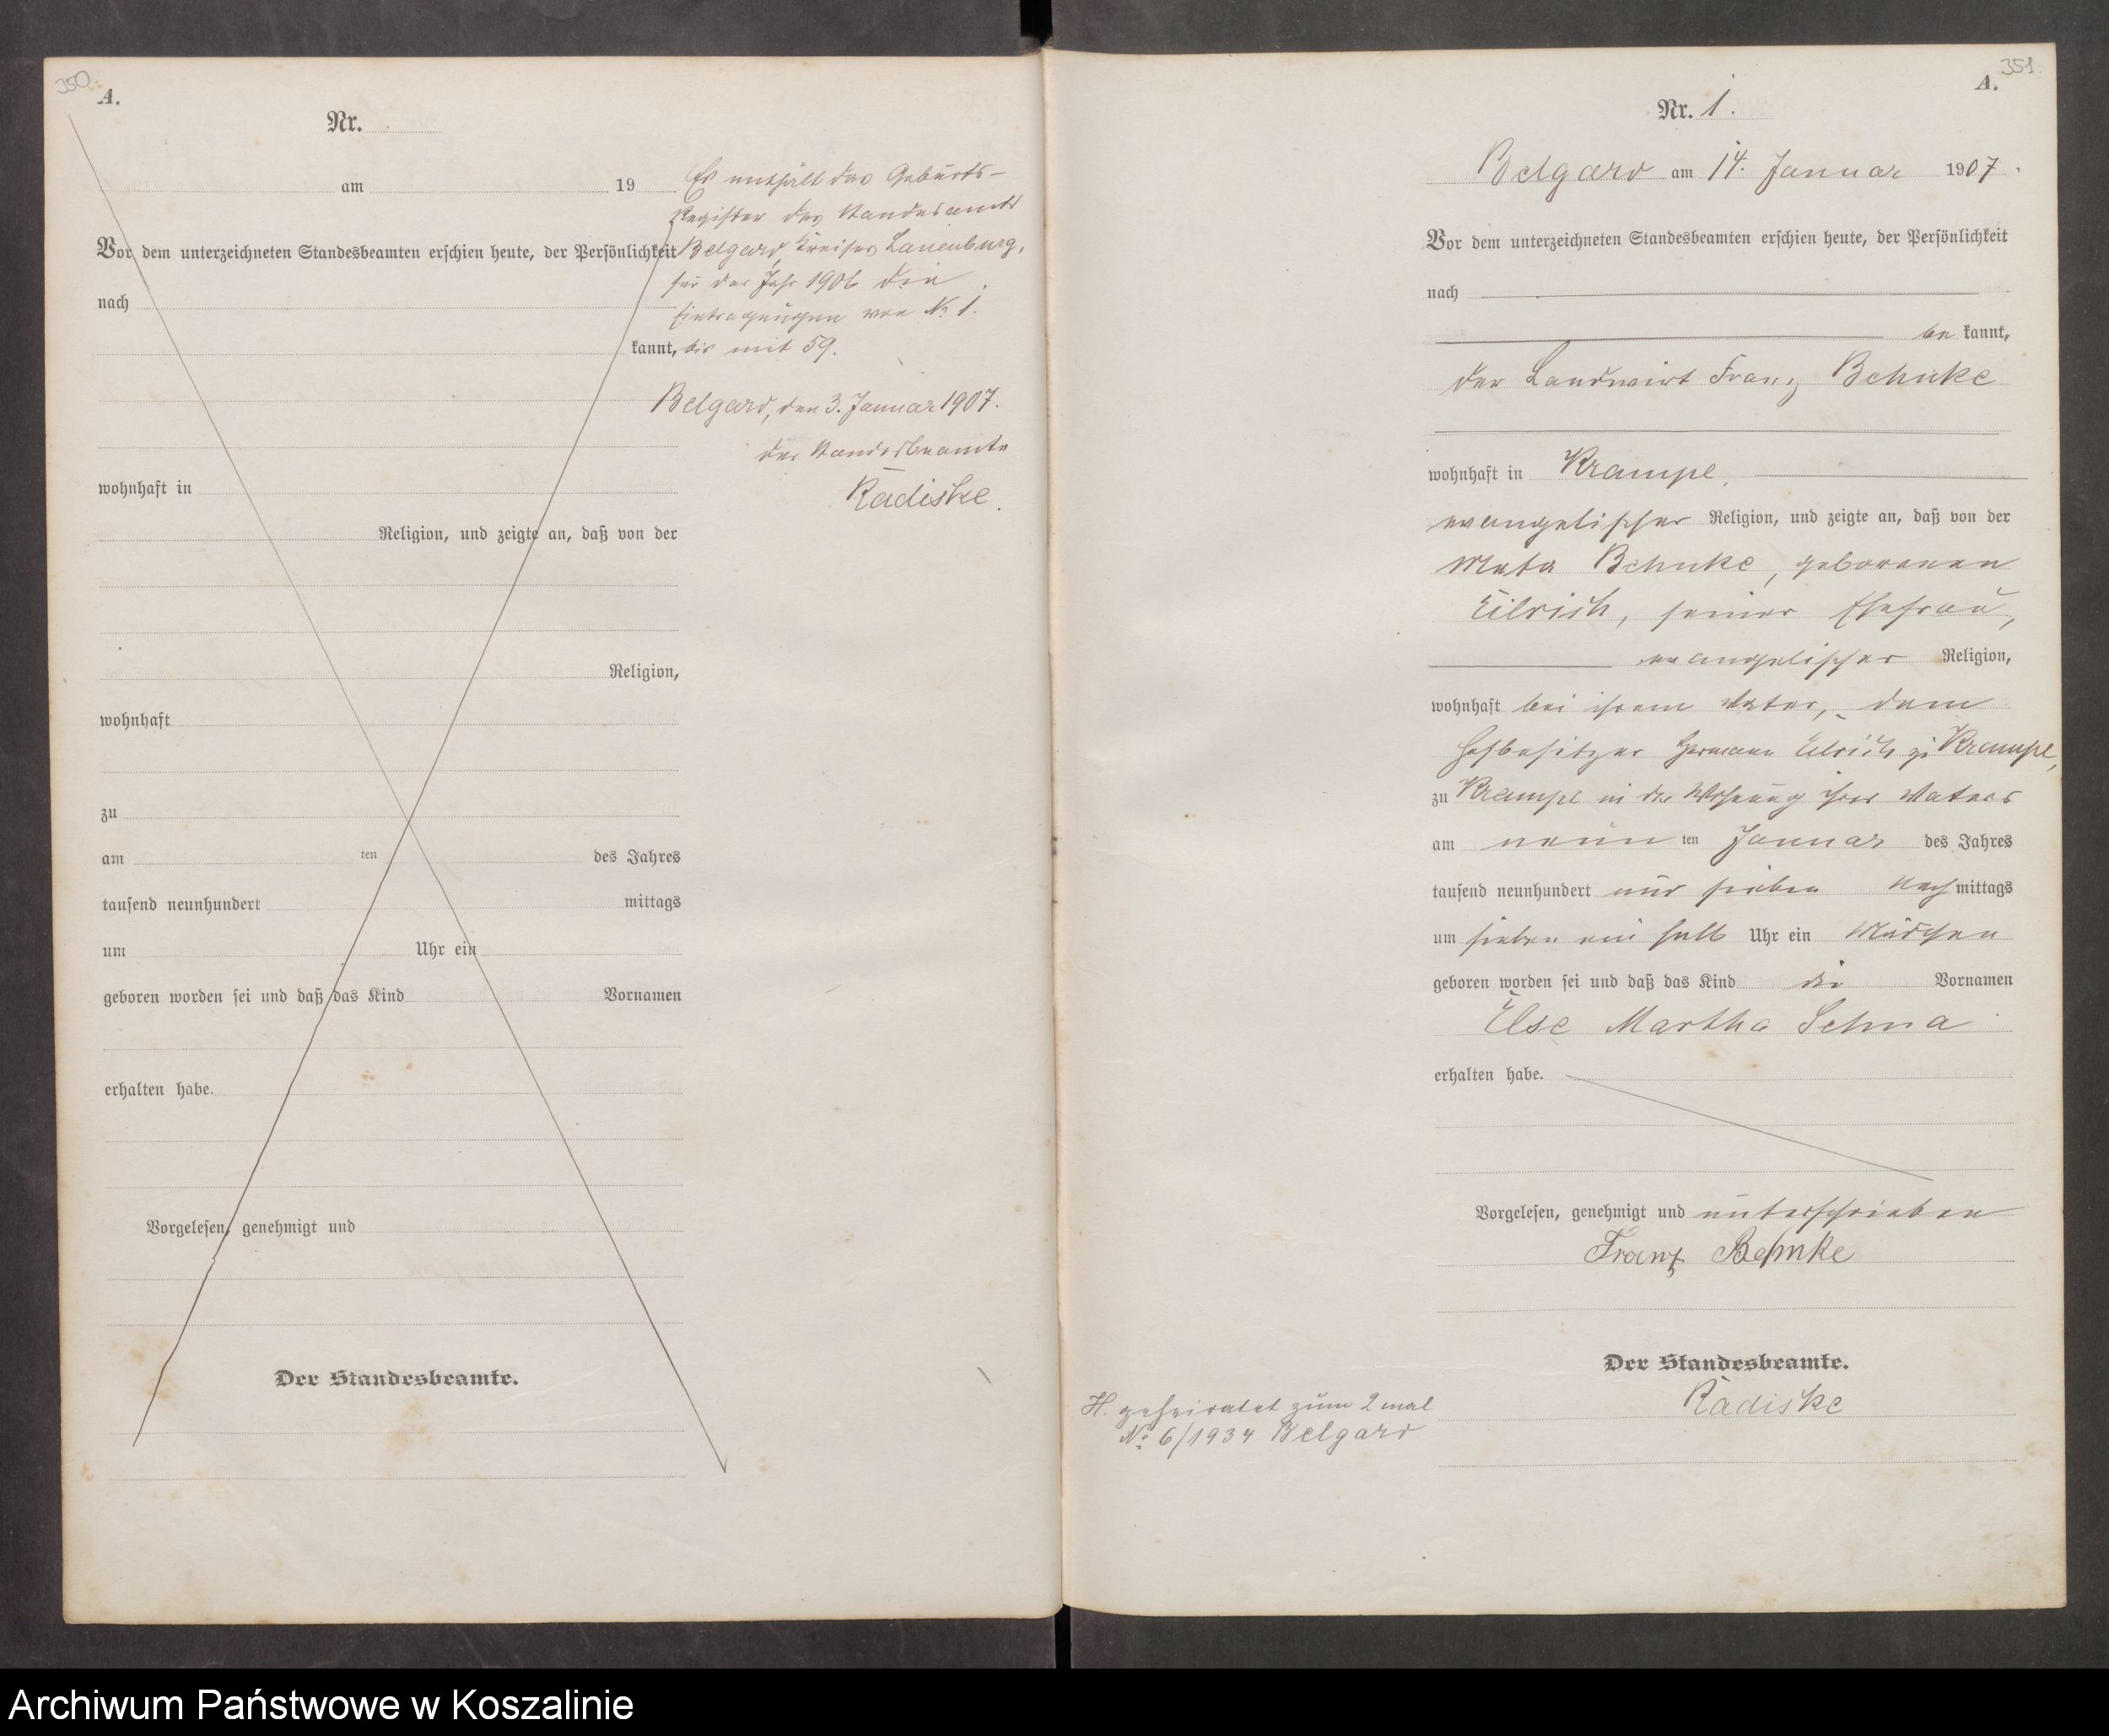 350.
A.
Nr.
am 19
Vor dem unterzeichneten Standesbeamten erschien heute, der Persönlichkeit
nach
kannt,
wohnhaft in
Religion, und zeigte an, daß von der
Religion,
wohnhaft
zu
am ten des Jahres
tausend neunhundert mittags
um Uhr ein
geboren worden sei und daß das Kind Vornamen
erhalten habe.
Vorgelesen, genehmigt und
Der Standesbeamte.
Es enthält das Geburts-
Register des Standesamts
Belgard, Kreises Lauenburg,
für das Jahr 1906 die
Eintragungen von No 1.
bis mit 59.
Belgard, den 3. Januar 1907.
Der Standesbeamte
Radiske.
351.
A.
Nr. 1.
Belgard am 14. Januar 1907.
Vor dem unterzeichneten Standesbeamten erschien heute, der Persönlichkeit
nach
be kannt,
der Landwirt Franz Behnke
wohnhaft in Krampe,
evangelischer Religion, und zeigte an, daß von der
Meta Behnke, geborenen
Eilrich, seiner Ehefrau,
evangelischer Religion,
wohnhaft bei ihrem Vater, dem
Hofbesitzer Hermann Eilrich zu Krampe,
zu Krampe in der Wohnung ihres Vaters
am neun ten Januar des Jahres
tausend neunhundert und sieben Nach mittags
um sieben ein halb Uhr ein Mädchen
geboren worden sei und daß das Kind die Vornamen
Else Martha Selma
erhalten habe.
Vorgelesen, genehmigt und unterschrieben
Franz Behnke
Der Standesbeamte.
Radiske
H. geheiratet zum 2 mal
No 6/1934 Belgard
Archiwum Państwowe w Koszalinie